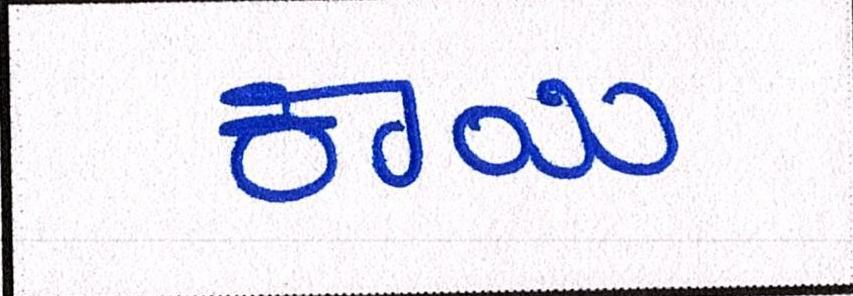 ಕಾಯ